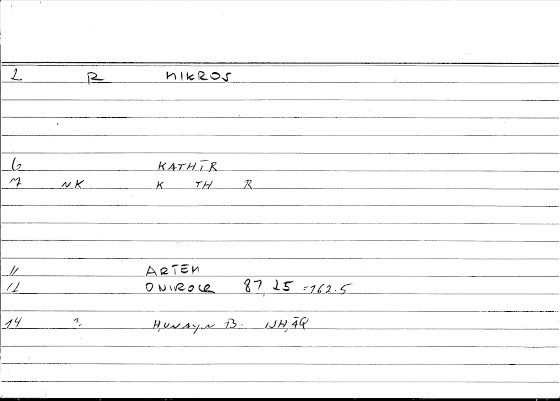 2 R MIKROS
6 KATHĪR
7 NK K TH R
11 ARTEM
12 ONIROCR 87,25 =162.5
14 ?. ḤUNAYN B. ISḤĀQ